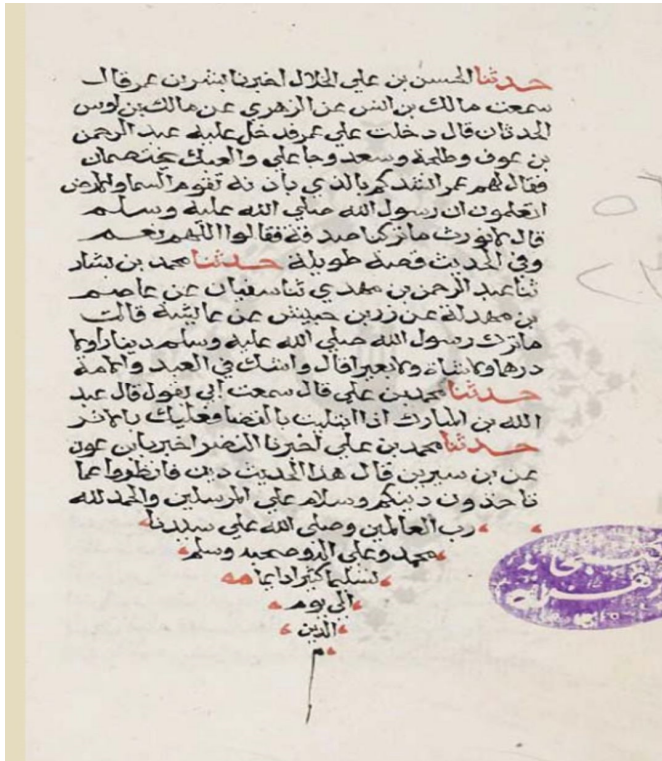 حدثنا الحسن بن علي الخلال اخبرنا بشر بن عمر قال
سمعت مالك بن انس عن الزهري عن مالك بن اوس
الحدثان قال دخلت علي عمر فدخل عليه عبد الرحمن
بن عوف وطلحة وسعد وجا علي والعباس يختصمان
فقال لهم عمر انشدكم بالذي باذنه تقوم السما والارض
اتعلمون ان رسول الله صلي الله عليه وسلم
قال لا نورث ما تركنا صدقة فقالوا اللهم نعم
وفي الحديث قصة طويلة حدثنا محمد بن بشار
ثنا عبد الرحمن بن مهدي ثنا سفيان عن عاصم
بن مهدلة عن زر بن حبيش عن عايشة قالت
ما ترك رسول الله صلي الله عليه وسلم دينارا ولا
درهما ولا شاة ولا بعيرا قال واشك في العبد والامة
حدثنا محمد بن علي قال سمعت ابي يقول قال عبد
الله بن المبارك اذا ابتليت بالقضا فعليك بالاثر
حدثنا محمد بن علي اخبرنا النضر اخبرنا بن عون
عن بن سيرين قال هذا الحديث دين فانظروا عما
تاخذون دينكم وسلام علي المرسلين والحمد لله
رب العالمين وصلي الله علي سيدنا
محمد وعلي اله وصحبه وسلم
تسليما كثيرا دايما
الي يوم
الدين
م